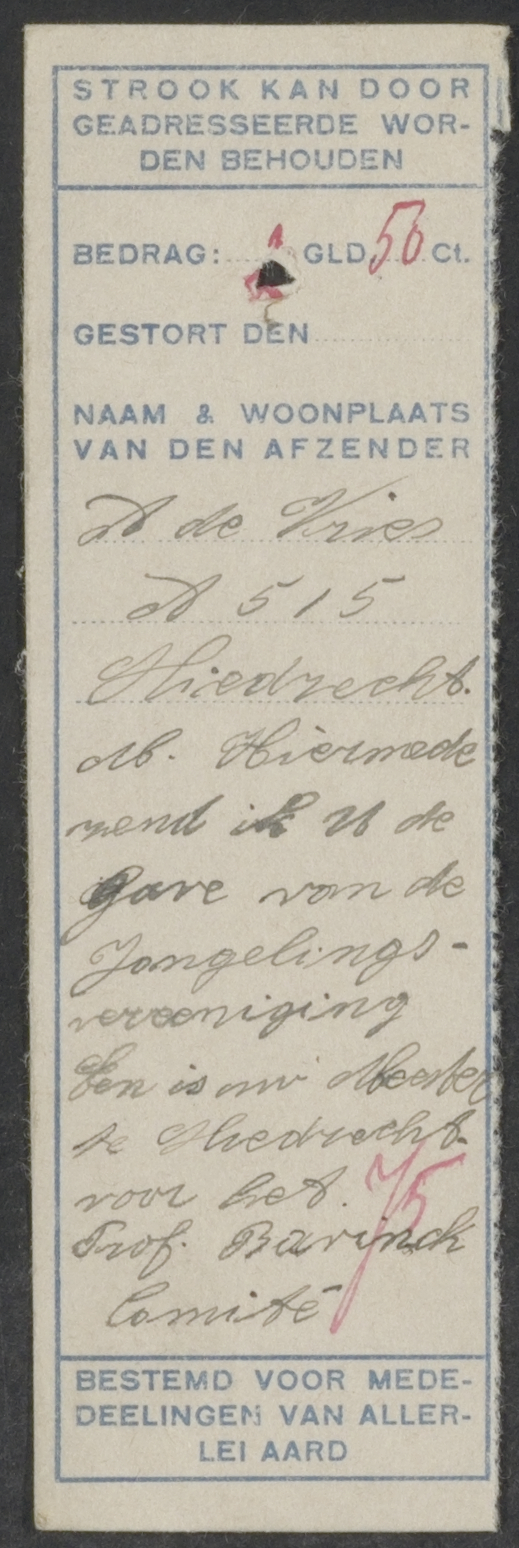 STROOK KAN DOOR
GEADRESSEERDE WOR-
DEN BEHOUDEN
BEDRAG: GLD. 56 Ct.
GESTORT DEN
NAAM & WOONPLAATS
VAN DEN AFZENDER
A de Vries
A 515
Sliedrecht.
Mb. Hiermede
zend ik U de
Gave van de
Jongelings-
vereeniging
Een is uw Meester
te Sliedrecht
voor het
75
Prof. Bavinck
Comité
BESTEMD VOOR MEDE-
DEELINGEN VAN ALLER-
LEI AARD